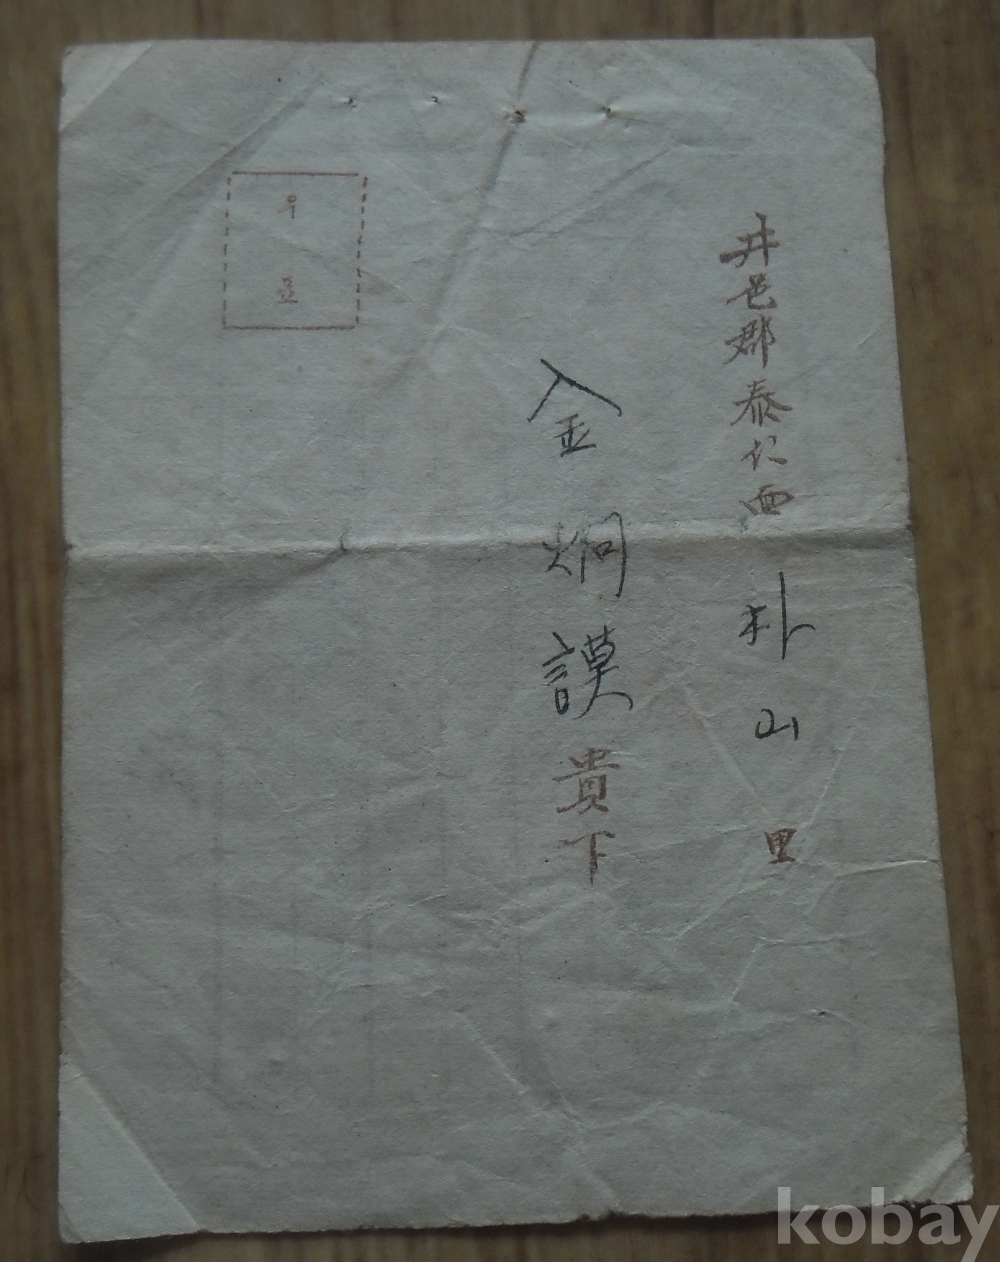 井邑郡泰仁面 朴山里
金炯謨 貴下
우표
kobay